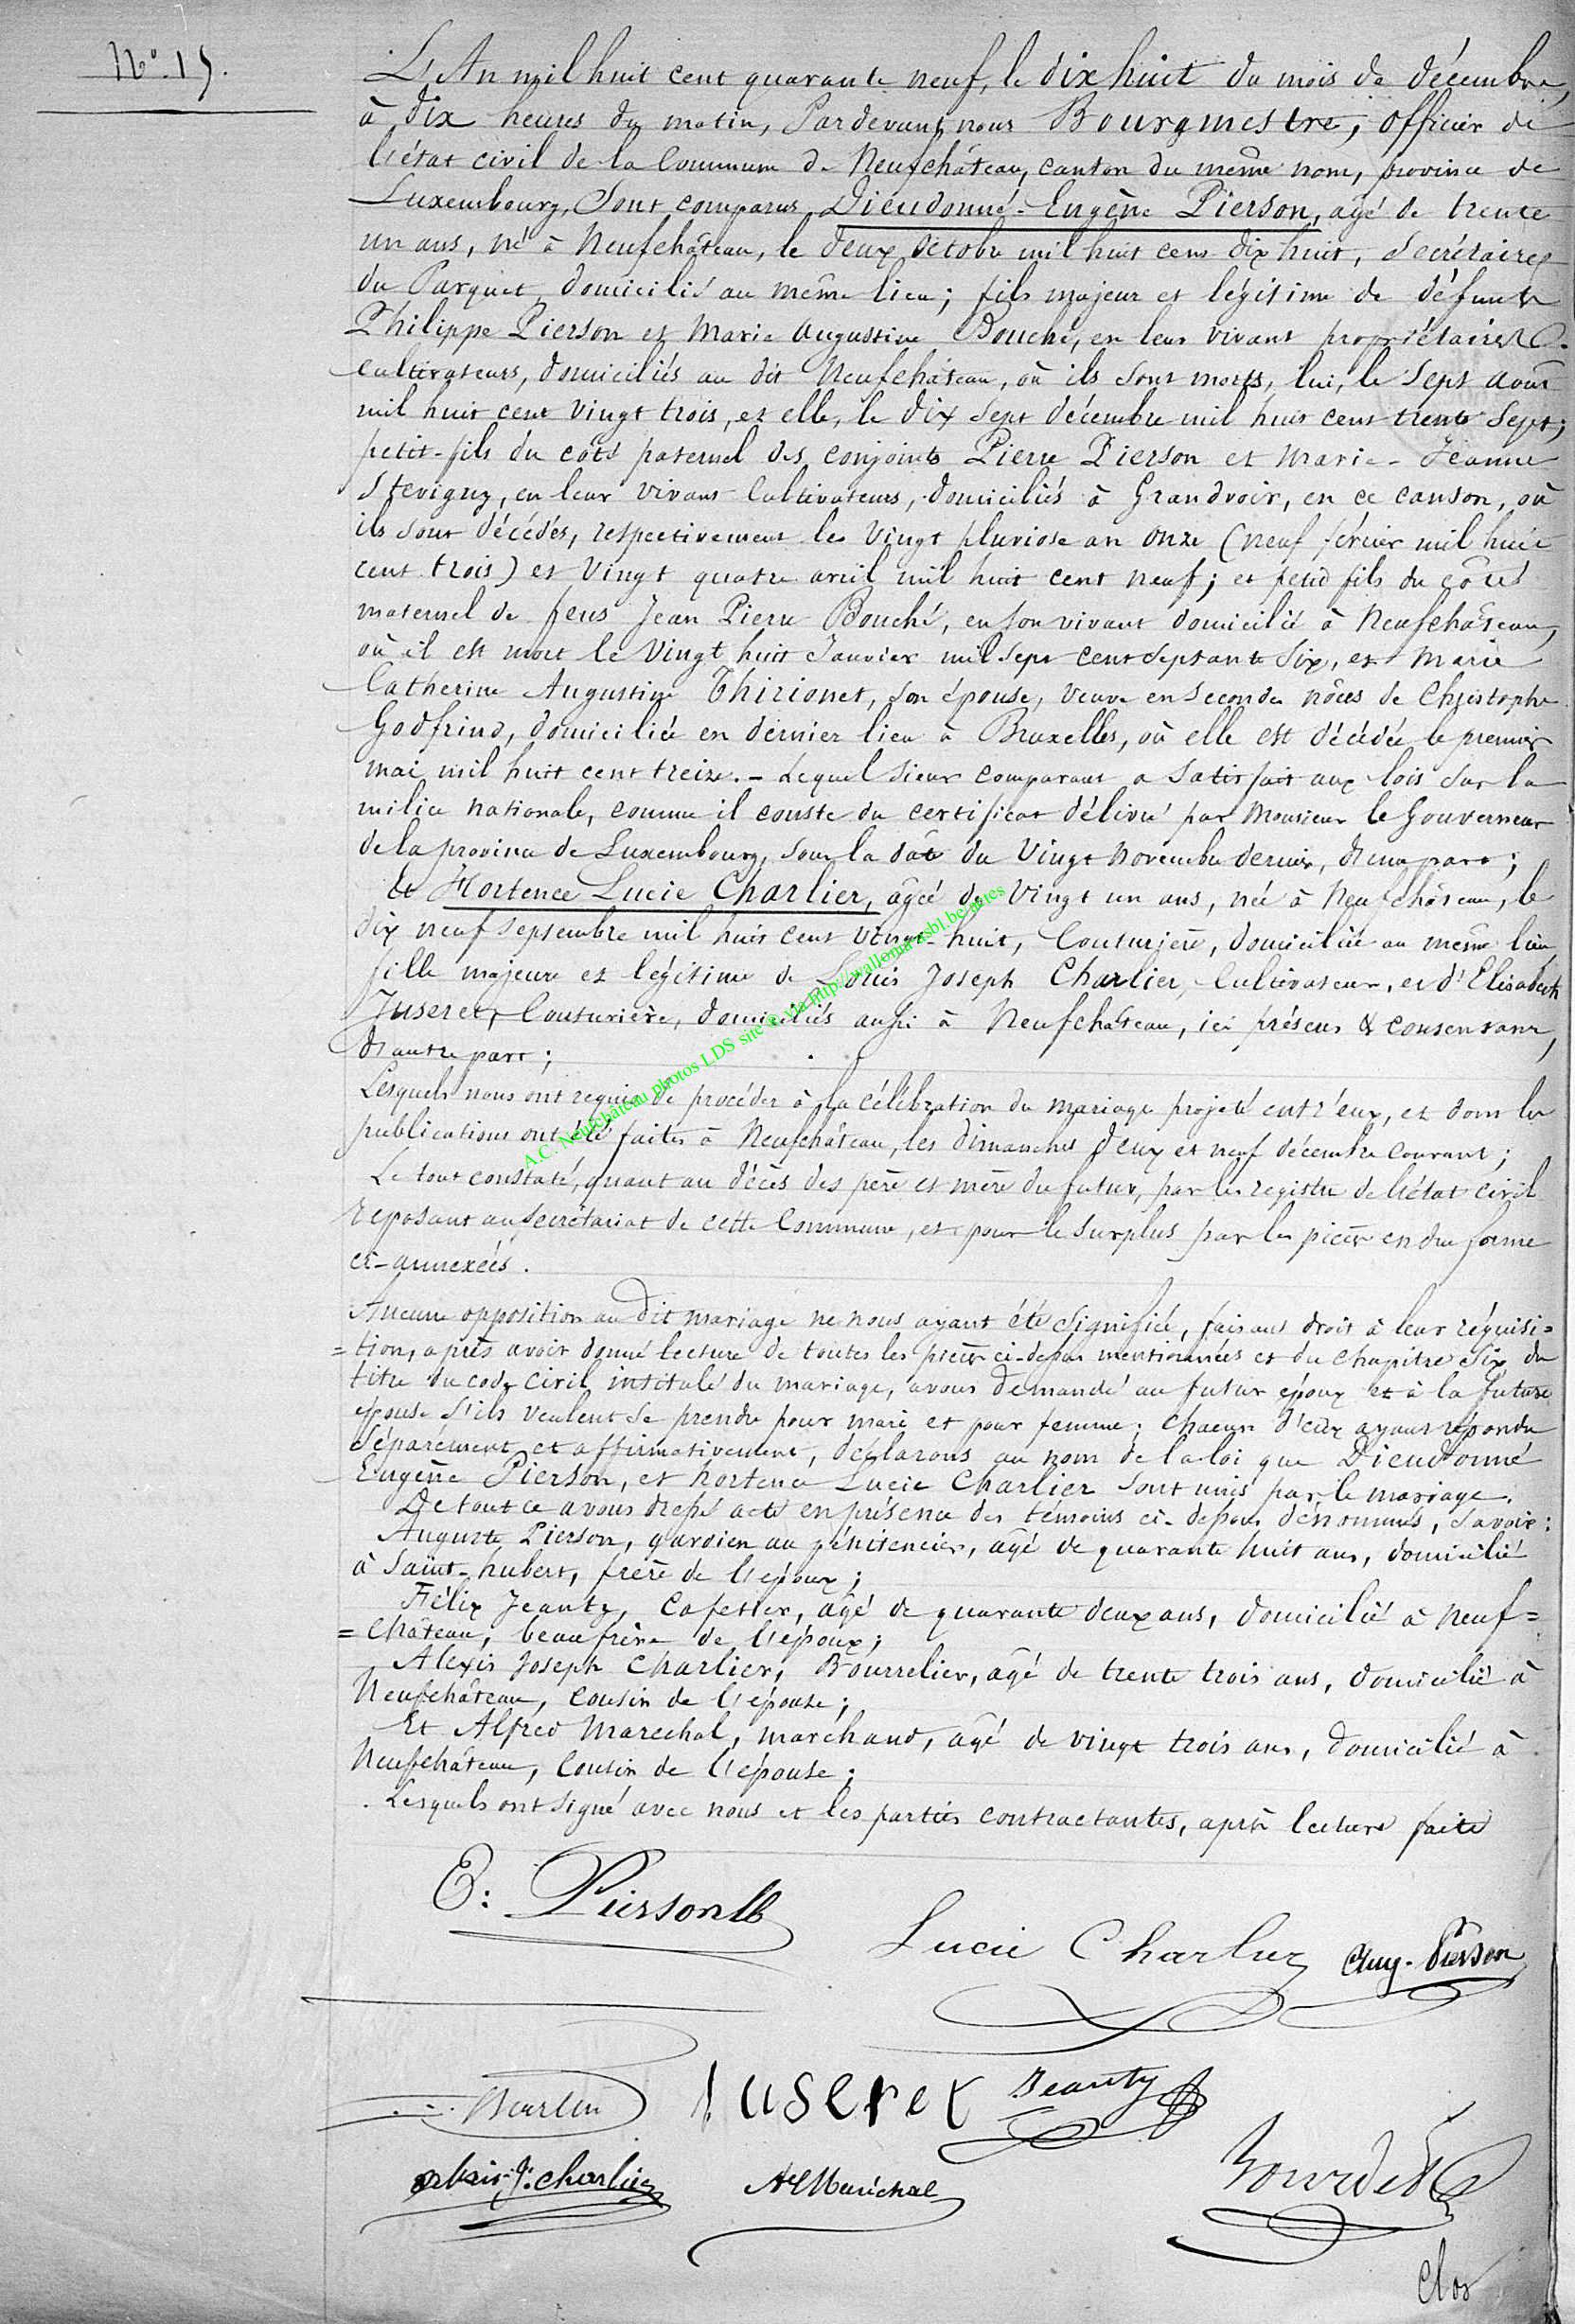 N°. 15.
L'An mil huit cent quarante neuf, le dix huit du mois de décembre,
à dix heures du matin, Pardevant nous Bourgmestre, officier de
l'état civil de la Commune de Neufchâteau, canton du même nom, province de
Luxembourg, Sont comparus Dieudonné-Eugène Pierson, âgé de trente
un ans, né à Neufchâteau, le deux octobre mil huit cent dix huit, Secrétaire
du Parquet, domicilié au même lieu; fils majeur et légitime de défunts
Philippe Pierson et Marie Augustine Bouché, en leur vivant propriétaires &
Cultivateurs, domiciliés au dit Neufchâteau, où ils sont morts, lui, le Sept août
mil huit cent vingt trois, et elle, le dix sept décembre mil huit cent trente sept;
petit-fils du côté paternel des conjoints Pierre Pierson et Marie-Jeanne
Stevigny, en leur vivant Cultivateurs, domiciliés à Grandvoir, en ce canton, où
ils sont décédés, respectivement les vingt pluviose an onze (neuf février mil huit
cent trois) et vingt quatre avril mil huit cent neuf; et petit fils du côté
maternel de feus Jean Pierre Bouché, en son vivant domicilié à Neufchâteau,
où il est mort le vingt huit Janvier mil sept cent septante six, et Marie
Catherine Augustine Thirionet, son épouse, veuve en secondes nôces de Christophe
Godfrind, domiciliée en dernier lieu à Bruxelles, où elle est décédée le premier
mai mil huit cent treize. - Lequel sieur comparant a satisfait aux lois sur la
milice nationale, comme il conste du certificat délivré par Monsieur le Gouverneur
de la province de Luxembourg, sous la date du vingt novembre dernier, d'une part;
Et Hortence Lucie Charlier, âgée de vingt un ans, née à Neufchâteau, le
dix neuf septembre mil huit cent vingt-huit, Couturière, domiciliée au même lieu
fille majeure et légitime de Louis Joseph Charlier, Cultivateur, et d'Elisabeth
Juseret, Couturière, domiciliés aussi à Neufchâteau, ici présens & consentant,
d'autre part;
Lesquels nous ont requis de procéder à la célébration du mariage projeté entr'eux, et dont les
publications ont été faites à Neufchâteau, les dimanches deux et neuf décembre courant;
Le tout constaté, quant au décès des père et mère du futur, par les registres de l'état civil
reposant au secrétariat de cette Commune, et pour le surplus par les pièces en due forme
ci-annexées.
Aucune opposition au dit mariage ne nous ayant été signifiée, faisant droit à leur réquisi=
=tion, après avoir donné lecture de toutes les pièces ci-dessus mentionnées et du chapitre six du
titre du code civil intitulé du mariage, avons demandé au futur époux et à la future
épouse s'ils veulent se prendre pour mari et pour femme; chacun d'eux ayant répondu
séparément et affirmativement, déclarons au nom de la loi que Dieudonné
Eugène Pierson, et hortence Lucie Charlier sont unis par le mariage.
De tout ce avons dressé acte en présence des témoins ci-dessous dénommés, Savoir:
Auguste Pierson, gardien au pénitencier, âgé de quarante huit ans, domicilié
à Saint-hubert, frère de l'époux;
Félix Jeanty, Cafetier, âgé de quarante deux ans, domicilié à Neuf=
=château, beaufrère de l'époux;
Alexis Joseph Charlier, Bourrelier, âgé de trente trois ans, domicilié à
Neufchâteau, cousin de l'épouse;
Et Alfred Marechal, marchand, âgé de vingt trois ans, domicilié à
Neufchâteau, Cousin de l'épouse;
Lesquels ont signé avec nous et les parties contractantes, après lecture faite
E: Pierson
Lucie Charlier
Aug. Pierson
Juseret
Jeanty
Alexis J. Charlier
Al Maréchal
Bourdet
Clos
A.C. Neufchâteau photos LDS site © via http://wallonia-asbl.be/actes